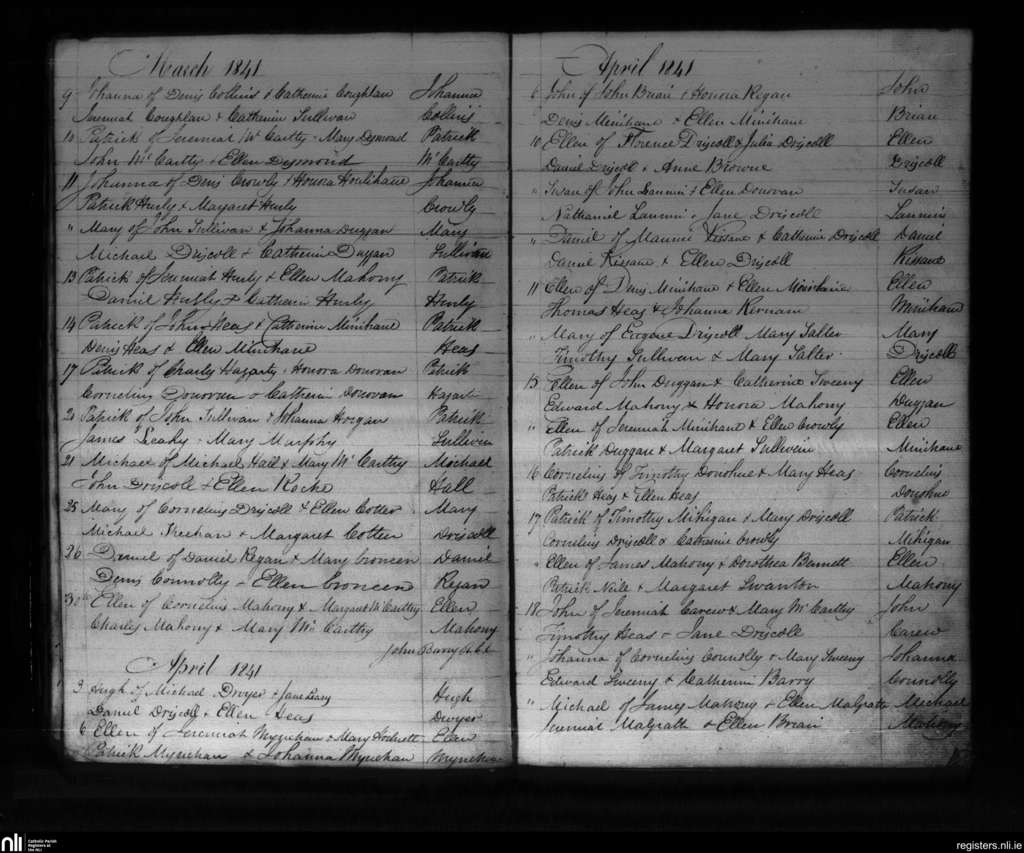 March 1841
9 Johanna of Denis Collins & Catherine Coughlan Johanna
Jeremiah Coughlan & Catherine Sullivan Collins
10 Patrick of Jeremiah Mc Carthy & Mary Desmond Patrick
John Mc Carthy & Ellen Desmond Mc Carthy
11 Johanna of Denis Crowly & Honora Houlihane Johanna
Patrick Hurly & Margaret Hurly Crowly
" Mary of John Sullivan & Johanna Duggan Mary
Michael Driscoll & Catherine Duggan Sullivan
13 Patrick of Jeremiah Hurly & Ellen Mahony Patrick
Daniel Hurly & Catherin Hurly Hurly
14 Patrick of John Heas & Catherine Minihane Patrick
Denis Heas & Ellen Minihane Heas
17 Patrick of Charles Hagarty & Honora Donovan Patrick
Cornelius Donovan & Catherin Donovan Hagarty
20 Patrick of John Sullivan & Johanna Horgan Patrick
James Leahy & Mary Murphy Sullivan
21 Michael of Michael Hall & Mary Mc Carthy Michael
John Driscoll & Ellen Roche Hall
25 Mary of Cornelius Driscoll & Ellen Cotter Mary
Michael Keehan & Margaret Cotter Driscoll
26 Daniel of Daniel Regan & Mary Croneen Daniel
Denis Connolly & Ellen Croneen Regan
30 Ellen of Cornelius Mahony & Margaret Mc Carthy Ellen
Charles Mahony & Mary Mc Carthy Mahony
John Barry
April 1841
3 Hugh of Michael Dwyer & Jane Leary Hugh
Daniel Driscoll & Ellen Heas Dwyer
6 Ellen of Jeremiah Mynehan & Mary Ellen
Patrick Mynehan & Johanna Mynehan Mynehan
April 1841
6 John of John Brian & Honora Regan John
Denis Minihane & Ellen Minihane Brian
10 Ellen of Florence Driscoll & Julia Driscoll Ellen
Daniel Driscoll & Anne Browne Driscoll
" Susan of John & Ellen Donovan Susan
Nathaniel & Jane Driscoll
" Daniel of Maurice Kissane & Catherine Driscoll Daniel
Daniel Kissane & Ellen Driscoll Kissane
11 Ellen of Denis Minihane & Ellen Minihane Ellen
Thomas Heas & Johanna Minihane
" Mary of Eugene Driscoll Mary Salter Mary
Timothy Sullivan & Mary Salter Driscoll
13 Ellen of John Duggan & Catherine Sweeny Ellen
Edward Mahony & Honora Mahony Duggan
" Ellen of Jeremiah Minihane & Ellen Crowly Ellen
Patrick Duggan & Margaret Sullivan Minihane
16 Cornelius of Timothy Donohue & Mary Heas Cornelius
Patrick Heas & Ellen Heas Donohue
17 Patrick of Timothy Mihigan & Mary Driscoll Patrick
Cornelius Driscoll & Catherine Crowly Mihigan
" Ellen of James Mahony & Dorothea Bennett Ellen
Patrick & Margaret Swanton Mahony
18 John of Jeremiah Carew & Mary Mc Carthy John
Timothy Heas & Jane Driscoll Carew
" Johanna of Cornelius Connolly & Mary Sweeny Johanna
Edward Sweeny & Catherine Barry Connolly
" Michael of James Mahony & Ellen Malgrath Michael
Jeremiah Malgrath & Ellen Brian Mahony
nli Catholic Parish Registers at the NLI
registers.nli.ie